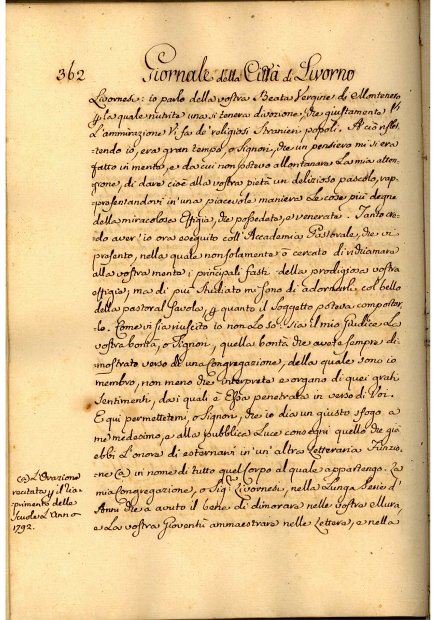 362 Giornale della Città di Livorno
Livornesi: io parlo della vostra Beata Vergine di Montenero
p la quale nutrite una sì tenera divozione, che giustamente
l'ammirazione vi fa de' religiosi stranieri popoli. A ciò riflet
tendo io, era gran tempo, o Signori, che un pensiero mi si era
fatto in mente, e da cui non potevo allontanare la mia atten-
zione, di dare cioè alla vostra pietà un delizioso pascolo, rap-
presentandovi in una piacevole maniera le cose più degne
della miracolosa Effigia, che possedete, e venerate. Tanto cre-
do aver' io ora eseguito coll' Accademia Pastorale, che vi
presento, nella quale non solamente ò cercato di richiamare
alla vostra mente i principali fasti della prodigiosa vostra
effigia; ma di più studiato mi sono di adornarli col bello
della pastoral favola, p quanto il soggetto poteva comportar-
lo. Come vi sia riuscito io non lo so: sia il mio Giudice la
vostra bontà, o Signori, quella bontà che avete sempre di-
mostrato verso di una Congregazione, della quale sono io
membro, non meno che interprete e organo di quei grati
sentimenti, da i quali è Essa penetrata in verso di Voi.
E qui permettetemi, o Signori, che io dia un giusto sfogo a
me medesimo, e alla pubblica luce consegni quello che già
ebbi l'onore di esternarvi in un' altra Letteraria Funzio-
ne (a) in nome di tutto quel Corpo al quale appartengo. La
mia Congregazione, o Sig.ri Livornesi, nella lunga serie d'
Anni che a avuto il bene di dimorare nelle vostre Mura,
e la vostra Gioventù ammaestrare nelle Lettere, e nella
(a) L'Orazione
recitata p il ria-
primento delle
Scuole l'Anno
1792.